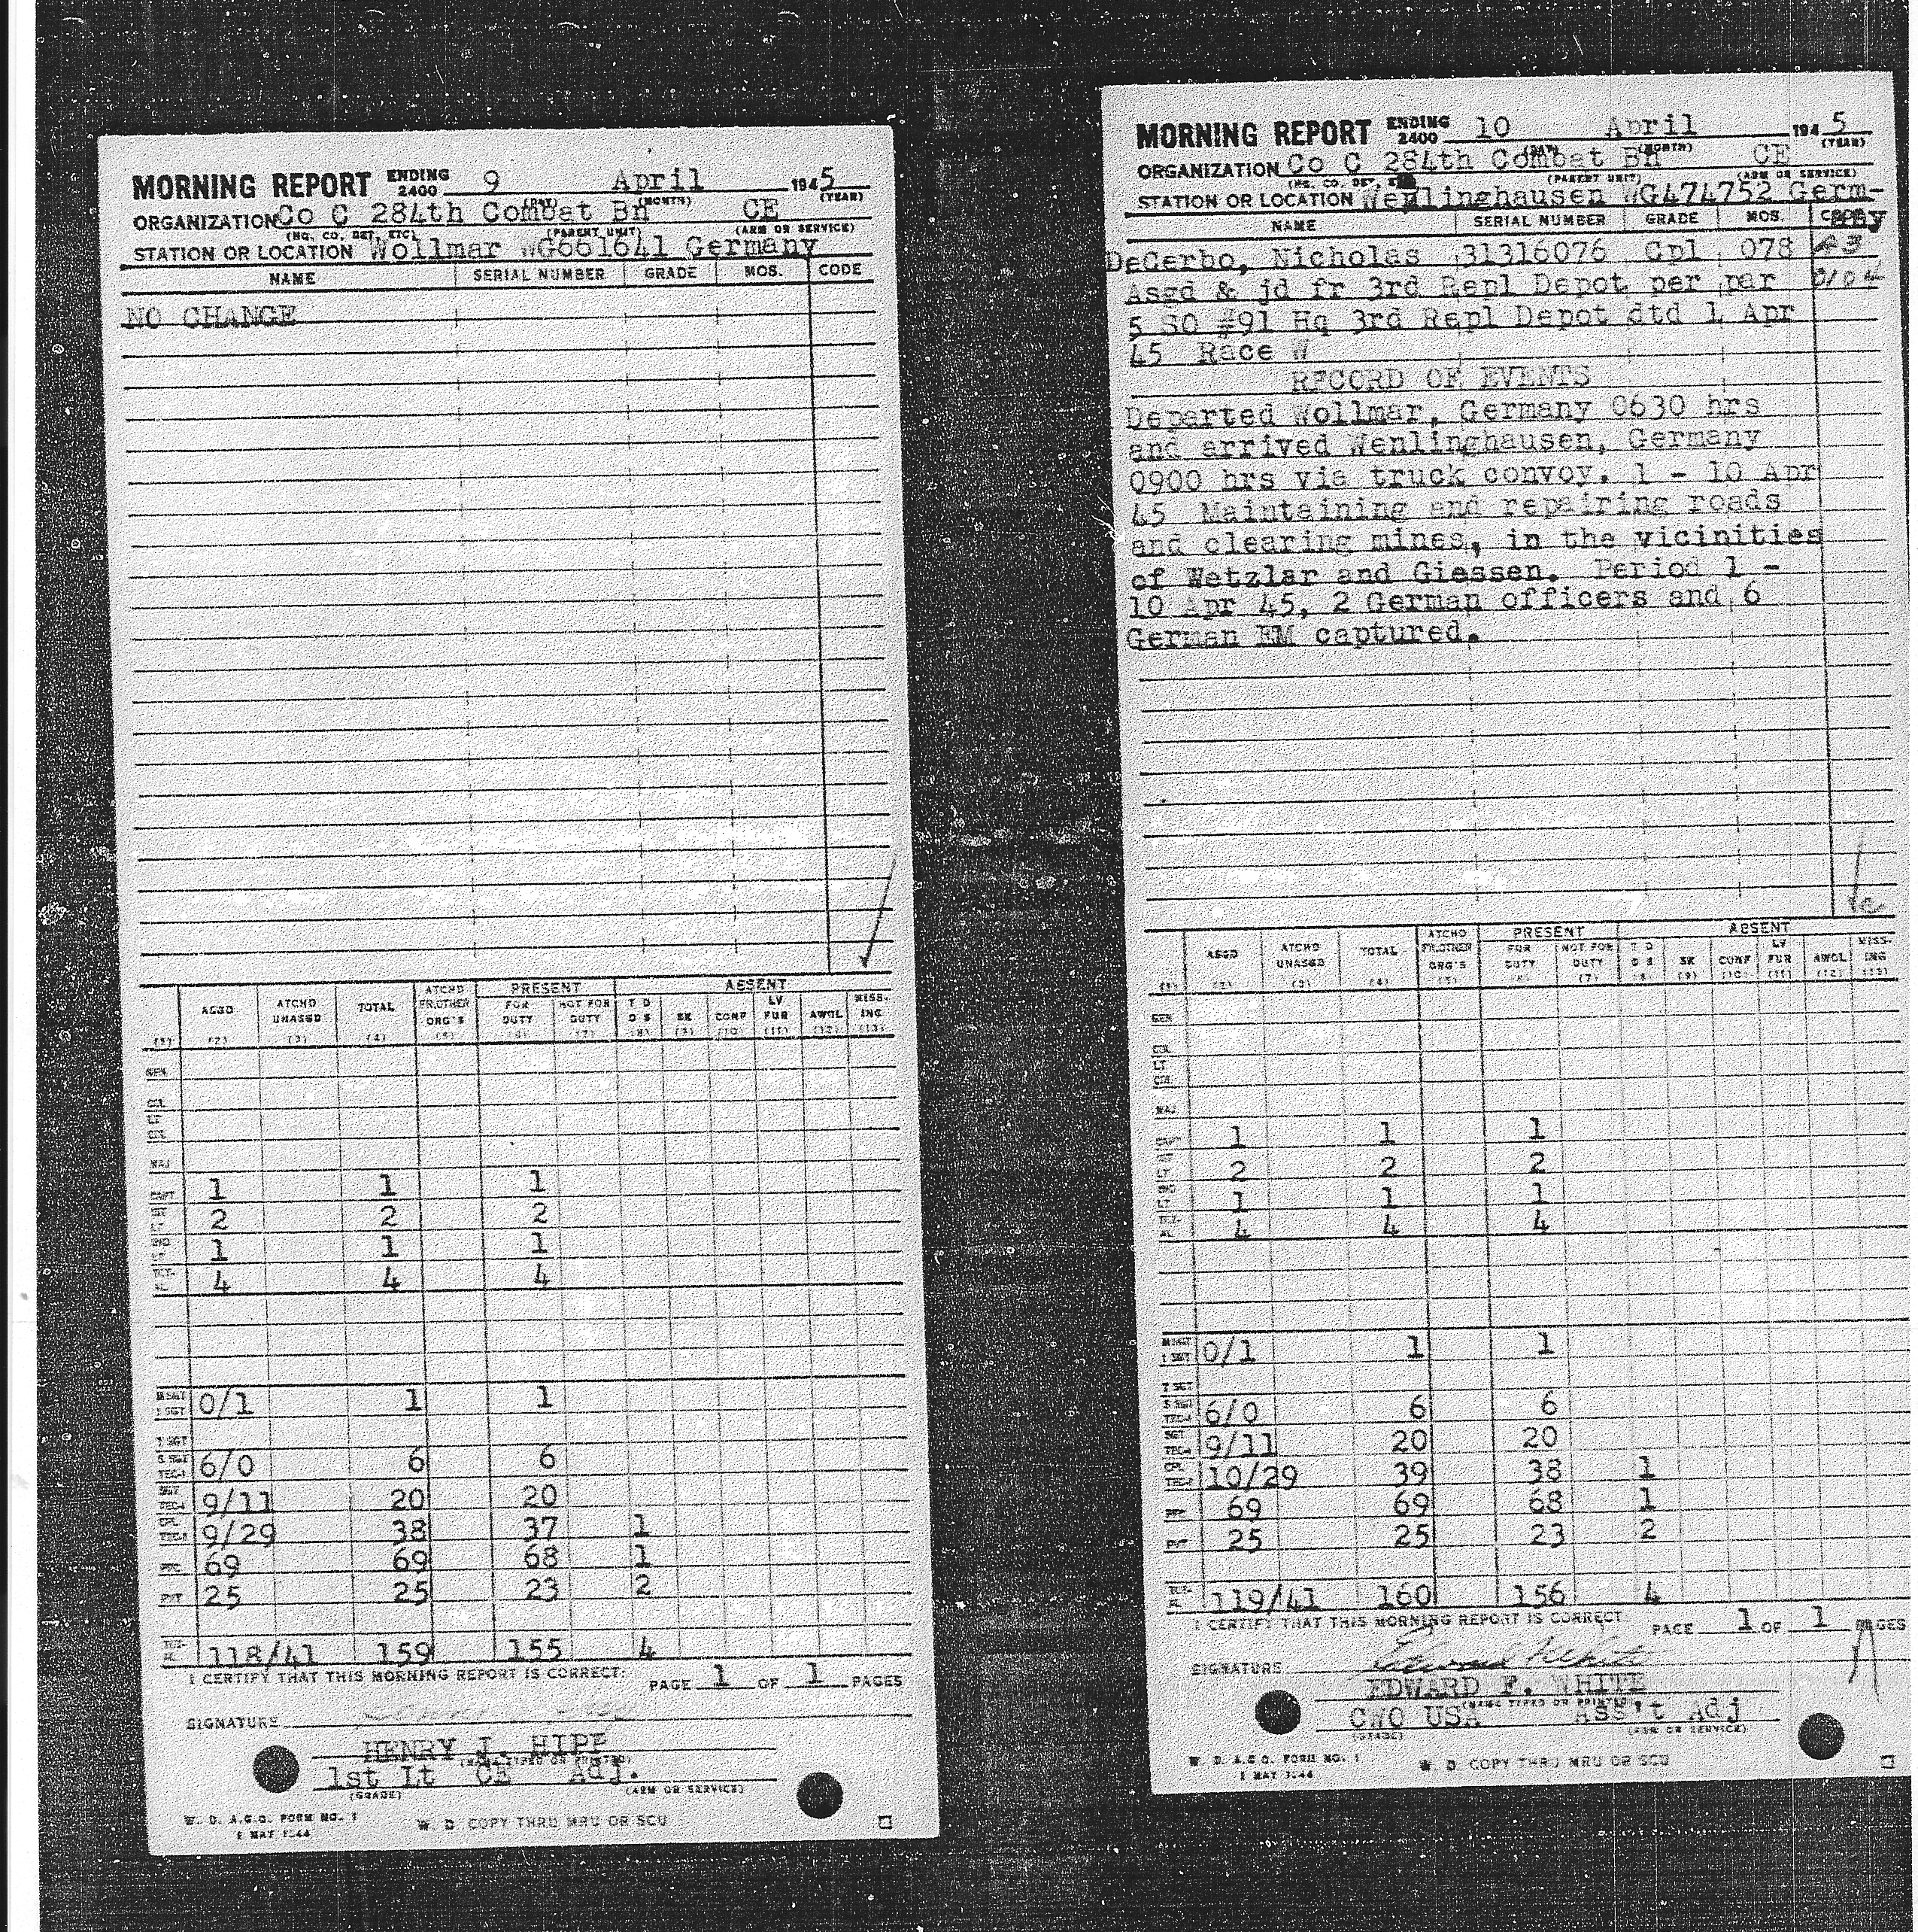 MORNING REPORT ENDING 2400 9 April 1945
(DAY) (MONTH) (YEAR)
ORGANIZATION Co C 284th Combat Bn CE
(HQ. CO. DET. ETC) (PARENT UNIT) (ARM OR SERVICE)
STATION OR LOCATION Wollmar WG661641 Germany
NAME SERIAL NUMBER GRADE MOS. CODE
NO CHANGE
ASGD ATCHD UNASGD TOTAL ATCHD FR.OTHER ORG'S PRESENT FOR DUTY NOT FOR DUTY ABSENT T D D S SK CONF LV FUR AWOL MISSING
(1) (2) (3) (4) (5) (6) (7) (8) (9) (10) (11) (12) (13)
GEN
COL
LT COL
MAJ
CAPT 1 1 1
1ST LT 2 2 2
2ND LT 1 1 1
TOTAL 4 4 4
M SGT 1 SGT 0/1 1 1
T SGT
S SGT TEC-3 6/0 6 6
SGT TEC-4 9/11 20 20
CPL TEC-5 9/29 38 37 1
PFC 69 69 68 1
PVT 25 25 23 2
TOTAL 118/41 159 155 4
I CERTIFY THAT THIS MORNING REPORT IS CORRECT:
PAGE 1 OF 1 PAGES
SIGNATURE
HENRY J. HIPP
(NAME TYPED OR PRINTED)
1st Lt CE Adj.
(GRADE) (ARM OR SERVICE)
W. D. A.G.O. FORM NO. 1
1 MAY 1944
W. D COPY THRU MRU OR SCU
MORNING REPORT ENDING 2400 10 April 1945
(DAY) (MONTH) (YEAR)
ORGANIZATION Co C 284th Combat Bn CE
(HQ. CO. DET. ETC) (PARENT UNIT) (ARM OR SERVICE)
STATION OR LOCATION Wenlinghausen WG474752 Germ-
any
NAME SERIAL NUMBER GRADE MOS. CODE
DeCerbo, Nicholas 31316076 Cpl 078
Asgd & jd fr 3rd Repl Depot per par
5 SO #91 Hq 3rd Repl Depot dtd 1 Apr
45 Race W
RECORD OF EVENTS
Departed Wollmar, Germany 0630 hrs
and arrived Wenlinghausen, Germany
0900 hrs via truck convoy. 1 - 10 Apr
45 Maintaining and repairing roads
and clearing mines, in the vicinities
of Wetzlar and Giessen. Period 1 -
10 Apr 45, 2 German officers and 6
German EM captured.
ASGD ATCHD UNASGD TOTAL ATCHD FR.OTHER ORG'S PRESENT FOR DUTY NOT FOR DUTY ABSENT T D D S SK CONF LV FUR AWOL MISSING
(1) (2) (3) (4) (5) (6) (7) (8) (9) (10) (11) (12) (13)
GEN
COL
LT COL
MAJ
CAPT 1 1 1
1ST LT 2 2 2
2ND LT 1 1 1
TOTAL 4 4 4
M SGT 1 SGT 0/1 1 1
T SGT
S SGT TEC-3 6/0 6 6
SGT TEC-4 9/11 20 20
CPL TEC-5 10/29 39 38 1
PFC 69 69 68 1
PVT 25 25 23 2
TOTAL 119/41 160 156 4
I CERTIFY THAT THIS MORNING REPORT IS CORRECT
PAGE 1 OF 1 PAGES
SIGNATURE Edward F White
EDWARD F. WHITE
(NAME TYPED OR PRINTED)
CWO USA Ass't Adj
(GRADE) (ARM OR SERVICE)
W. D. A.G.O. FORM NO. 1
1 MAY 1944
W. D COPY THRU MRU OR SCU